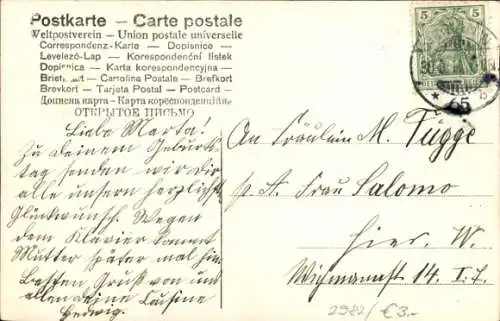 Postkarte – Carte postale
Weltpostverein – Union postale universelle
Correspondenz-Karte – Dopisnice
Levelezö-Lap – Korespondenční lístek
Dopisnica – Karta korespondencyjna
Brietkaart – Cartolina Postale – Brefkort
Brevkort – Tarjeta Postal – Postcard
Дописна карта – Карта кореспонденційна
ОТКРЫТОЕ ПИСЬМО
5 5
65
Liebe Marta!
Zu deinem Geburts-
tag senden wir dir
alle unsern herzlichst.
Glückwunsch. Wegen
dem Klavier kommt
Mutter später mal hin.
Besten Gruß von uns
allen deine Cousine
Hedwig.
An Fräulein M. Tugge
p. A. Frau Salomo
Hier. W.
Wichmannstr. 14. I. r.
2982/ €3.-